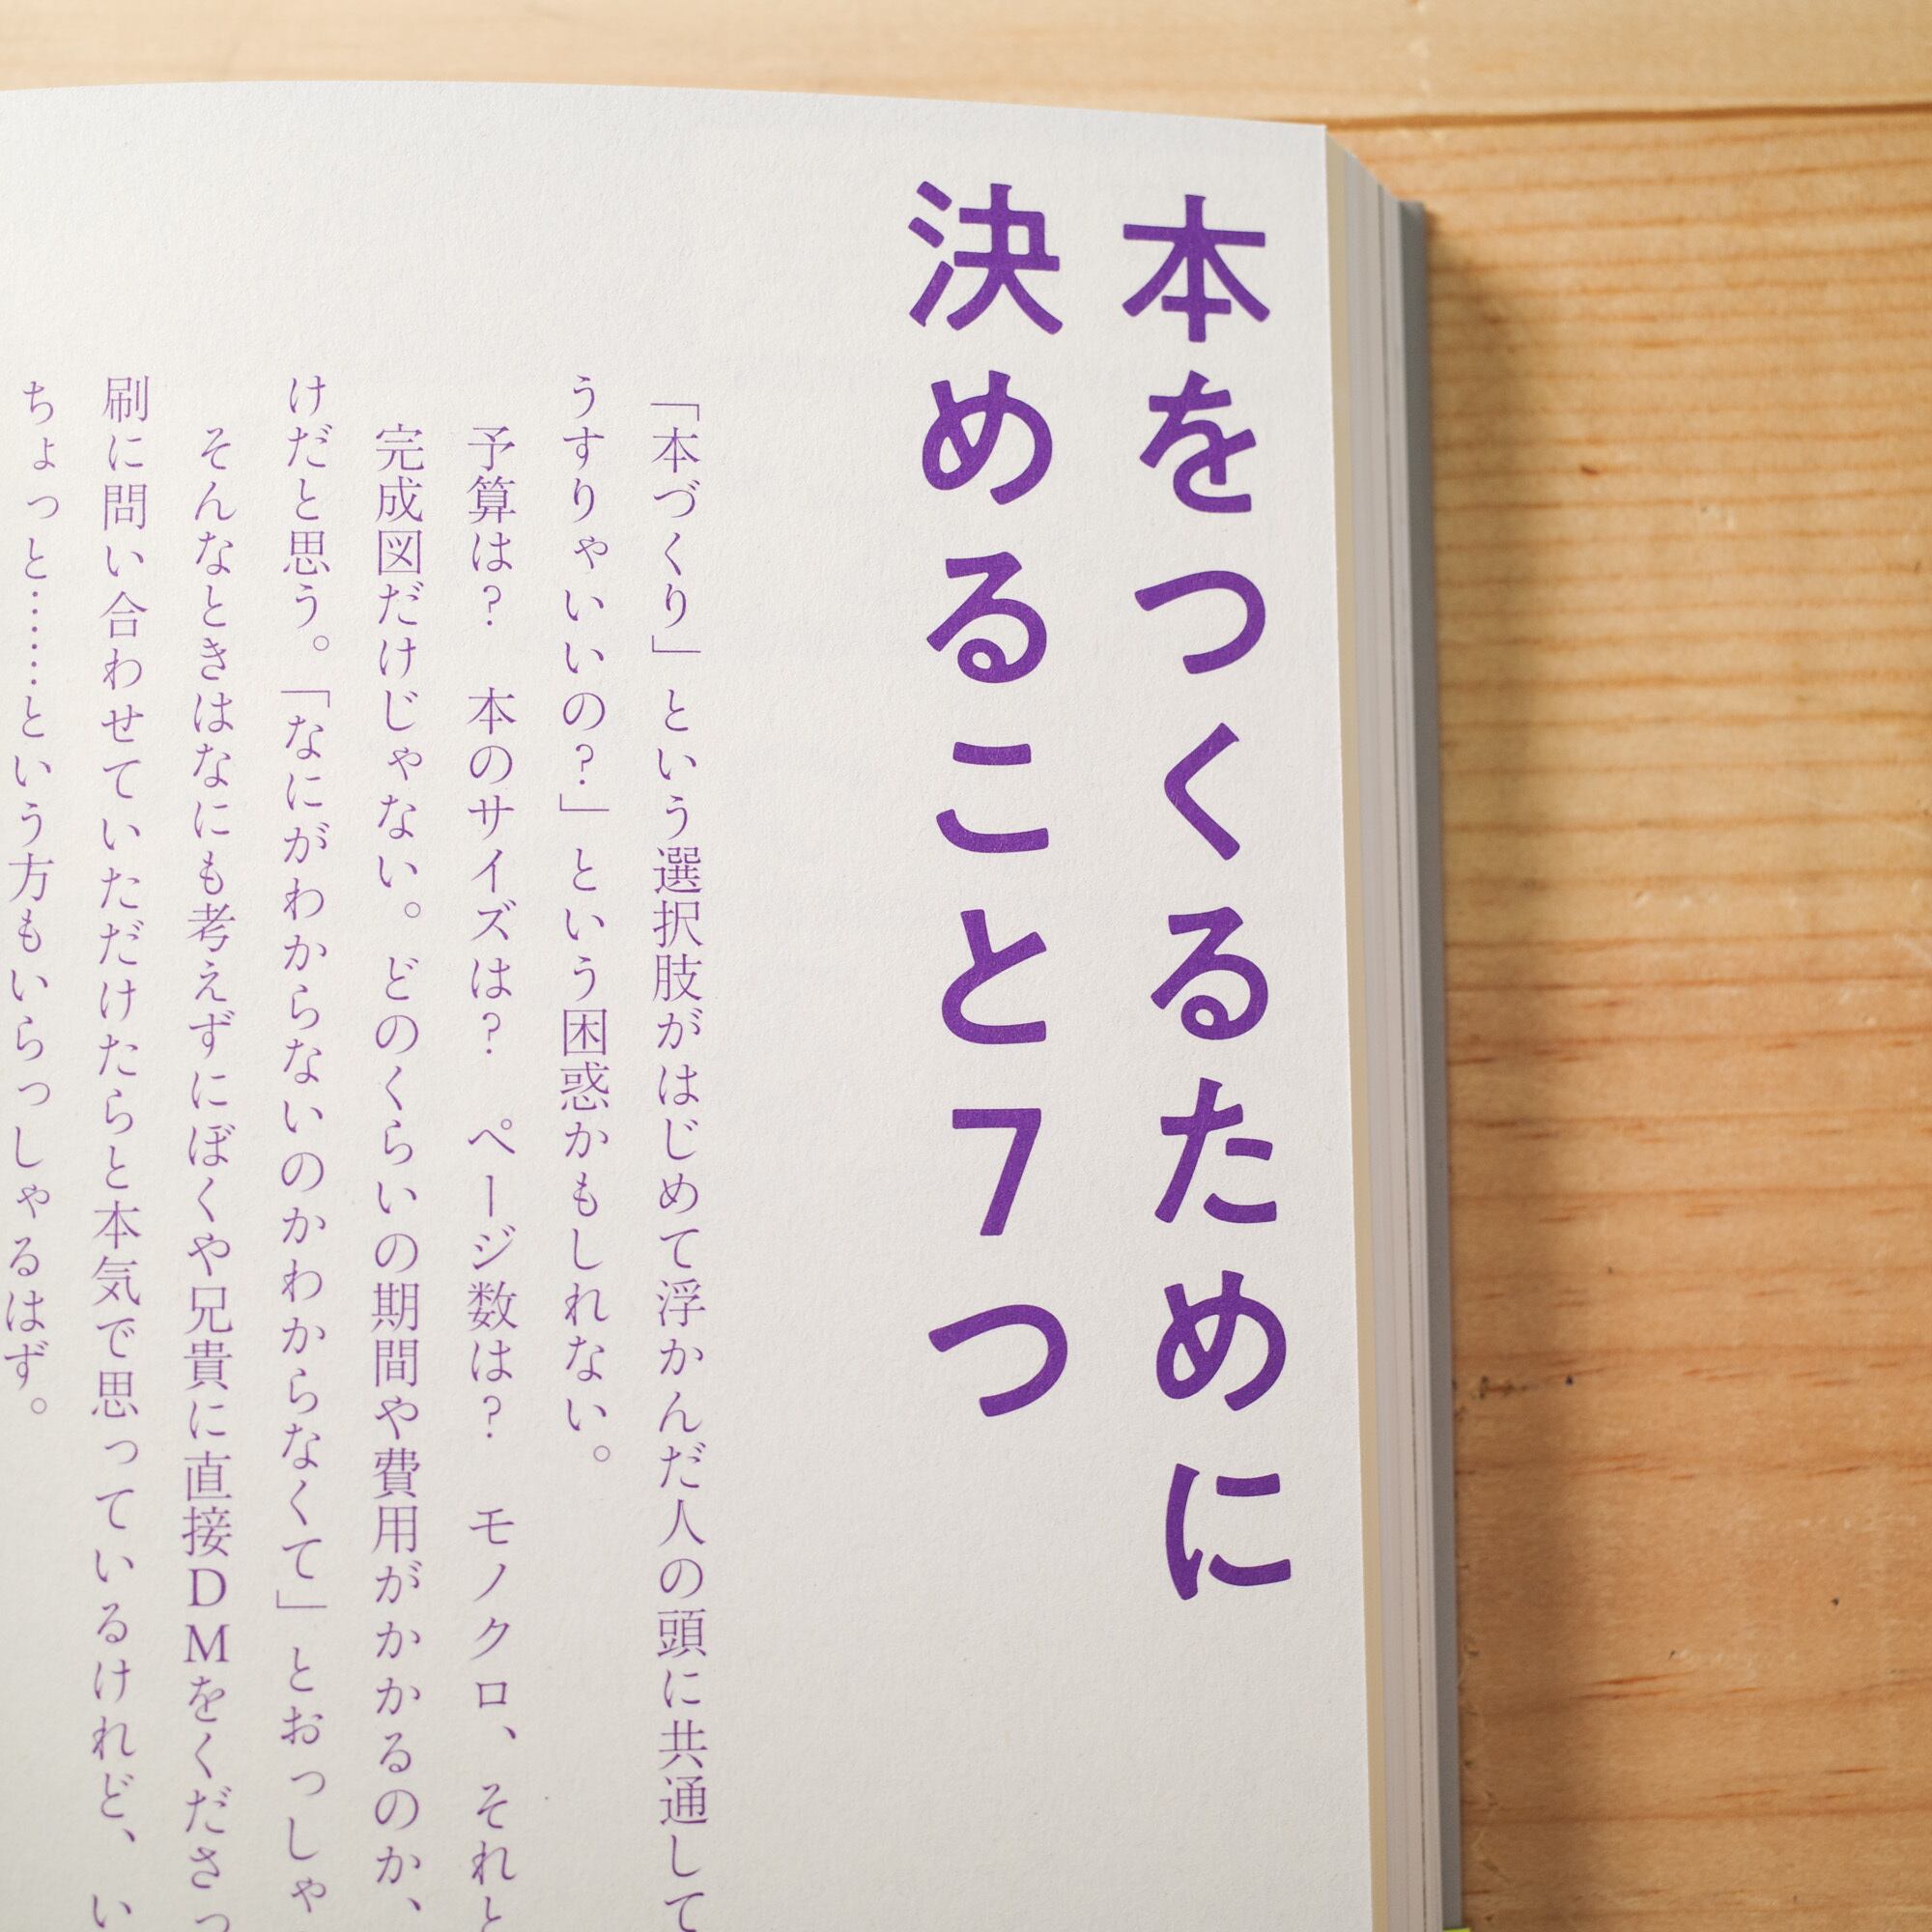 本をつくるために
決めること7つ
「本づくり」という選択肢がはじめて浮かんだ人の頭に共通して
うすりゃいいの？」という困惑かもしれない。
予算は？　本のサイズは？　ページ数は？　モノクロ、それと
完成図だけじゃない。どのくらいの期間や費用がかかるのか、
けだと思う。「なにがわからないのかわからなくて」とおっしゃ
そんなときはなにも考えずにぼくや兄貴に直接DMをくださっ
刷に問い合わせていただけたらと本気で思っているけれど、い
ちょっと……という方もいらっしゃるはず。